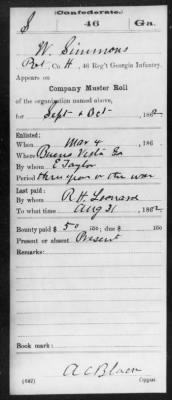 (Confederate.)
S 46 Ga.
W. Simmons
Pvt, Co. H, 46 Reg't Georgia Infantry.
Appears on
Company Muster Roll
of the organization named above,
for Sept & Oct, 1862
Enlisted:
When Mar 4, 186
Where Buena Vista Ga
By whom E Taylor
Period three years or the war
Last paid:
By whom R. H. Leonard
To what time Aug 31, 1862.
Bounty paid $ 50 100; due $ 100
Present or absent Present
Remarks:
Book mark:
A C Black
(642) Copyist.